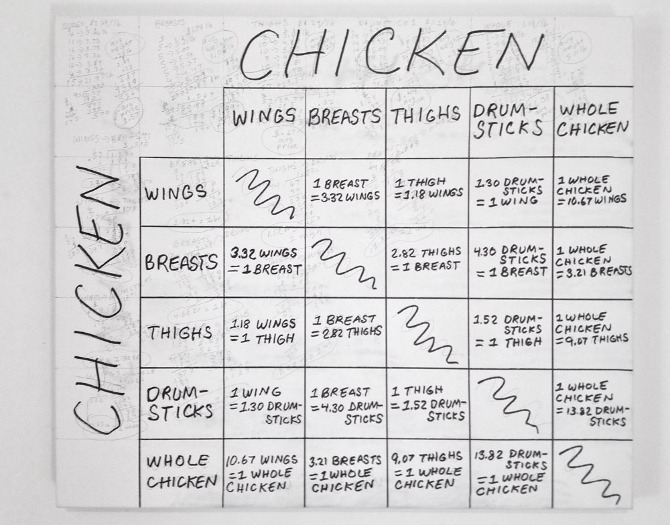 CHICKEN
WINGS BREASTS THIGHS DRUM-STICKS WHOLE CHICKEN
CHICKEN
WINGS
1 BREAST
=3.32 WINGS
1 THIGH
=1.18 WINGS
1.30 DRUM-
STICKS
= 1 WING
1 WHOLE
CHICKEN
=10.67 WINGS
BREASTS
3.32 WINGS
= 1 BREAST
2.82 THIGHS
= 1 BREAST
4.30 DRUM-
STICKS
= 1 BREAST
1 WHOLE
CHICKEN
=3.21 BREASTS
THIGHS
1.18 WINGS
= 1 THIGH
1 BREAST
=2.82 THIGHS
1.52 DRUM-
STICKS
= 1 THIGH
1 WHOLE
CHICKEN
=9.07 THIGHS
DRUM-
STICKS
1 WING
=1.30 DRUM-
STICKS
1 BREAST
=4.30 DRUM-
STICKS
1 THIGH
=1.52 DRUM-
STICKS
1 WHOLE
CHICKEN
=13.82 DRUM-
STICKS
WHOLE
CHICKEN
10.67 WINGS
=1 WHOLE
CHICKEN
3.21 BREASTS
=1 WHOLE
CHICKEN
9.07 THIGHS
=1 WHOLE
CHICKEN
13.82 DRUM-
STICKS
=1 WHOLE
CHICKEN